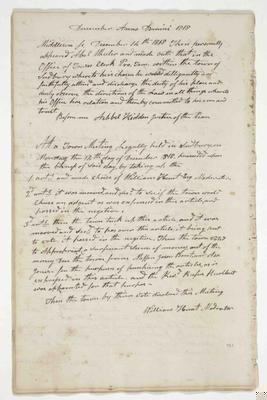 December Anno Domini 1818
Middlesex ss December 14th 1818 Then personally
appeared Abel Wheeler and made oath that in the
Office of Town Clerk Pro. Tem. within the town of
Sudbury whereto he is chosen he would diligently and
faithfully attend and discharge the duty of his place and
duly observe the directions of the Law in all things whereto
his Office hath relation and thereby committed to his care and
trust
Before me Ashbel Hidden Justice of the Peace
At a Town Meeting Legally held in Sudbury on
Monday the 14th day of December 1818. proceeded upon
the charge of said day by taking up the
1st article and made choice of William Hunt Esq Moderator
2nd article it was moved and put to see if the town would
chuse an as was expressed in the article and
passed in the negative
3rd article then the town took up this article and it was
moved and to pass over this article it being put
to vote it passed in the negative. Then the town voted
to appropriate a sufficient sum of money out of the
money due the town from
for the purpose of purchasing the articles as is
expressed in this article and the Revd. Rufus Hurlbut
was appointed for that purpose
Then the town by their vote dissolved this Meeting
William Hunt, Moderator